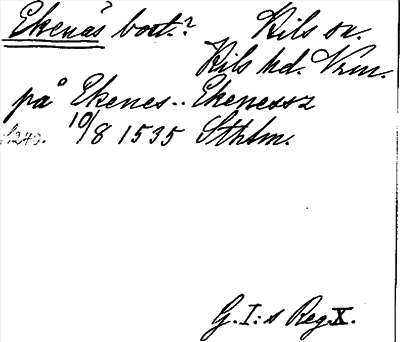 Ekenäs bort.? Kils sn.
Kils hd. Vrm.
på Ekenes.. Ekenessz
10/8 1535 Sthlm.
G. I:s Reg. X.